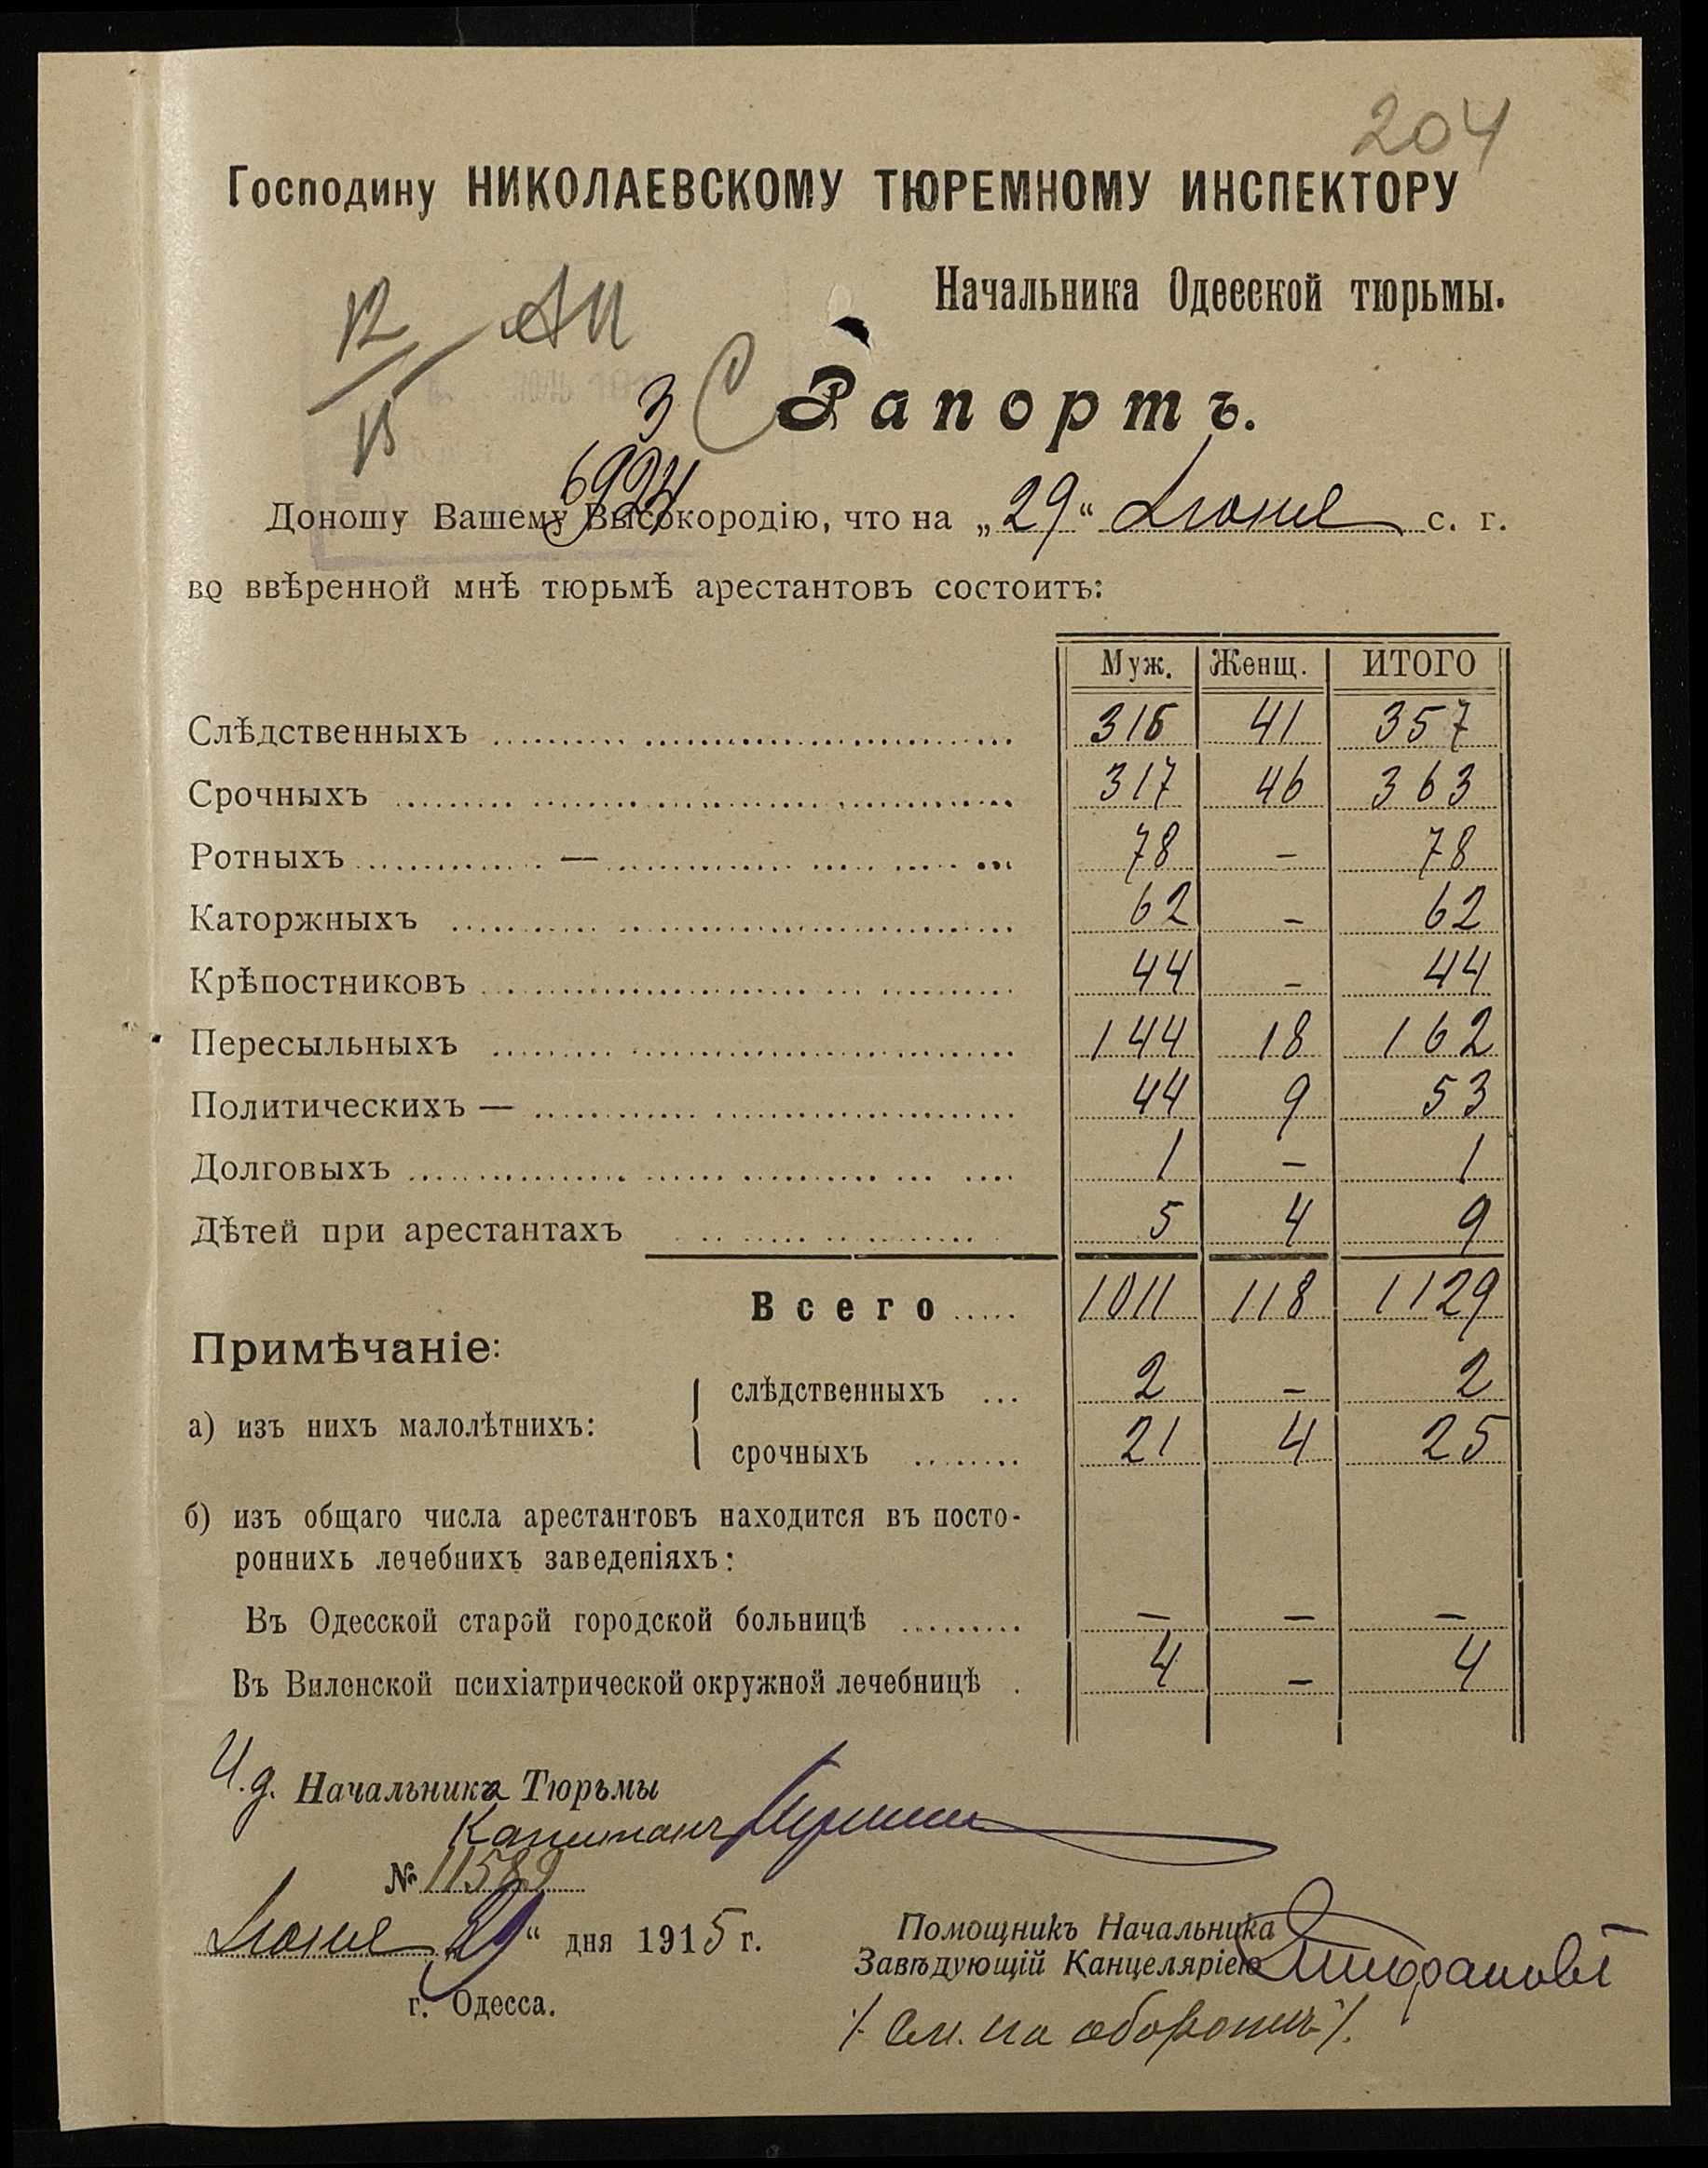 204
Господину НИКОЛАЕВСКОМУ ТЮРЕМНОМУ ИНСПЕКТОРУ
Начальника Одесской тюрьмы.
Рапортъ.
6924
Доношу Вашему Высокородію, что на „29“ Іюня с. г.
во ввѣренной мнѣ тюрьмѣ арестантовъ состоитъ:
Муж. Женщ. ИТОГО
Слѣдственныхъ 316 41 357
Срочныхъ 317 46 363
Ротныхъ — 78 – 78
Каторжныхъ 62 – 62
Крѣпостниковъ 44 – 44
Пересыльныхъ 144 18 162
Политическихъ — 44 9 53
Долговыхъ 1 – 1
Дѣтей при арестантахъ 5 4 9
Всего 1011 118 1129
Примѣчаніе:
слѣдственныхъ 2 – 2
а) изъ нихъ малолѣтнихъ:
срочныхъ 21 4 25
б) изъ общаго числа арестантовъ находится въ посто-
роннихъ лечебнихъ заведеніяхъ:
Въ Одесской старой городской больницѣ – – –
Въ Виленской психіатрической окружной лечебницѣ 4 – 4
И.д. Начальника Тюрьмы
Капитанъ
№ 11589
Іюня 29“ дня 1915 г.
г. Одесса.
Помощникъ Начальника
Завѣдующій Канцеляріею
/. См. на оборотѣ /.